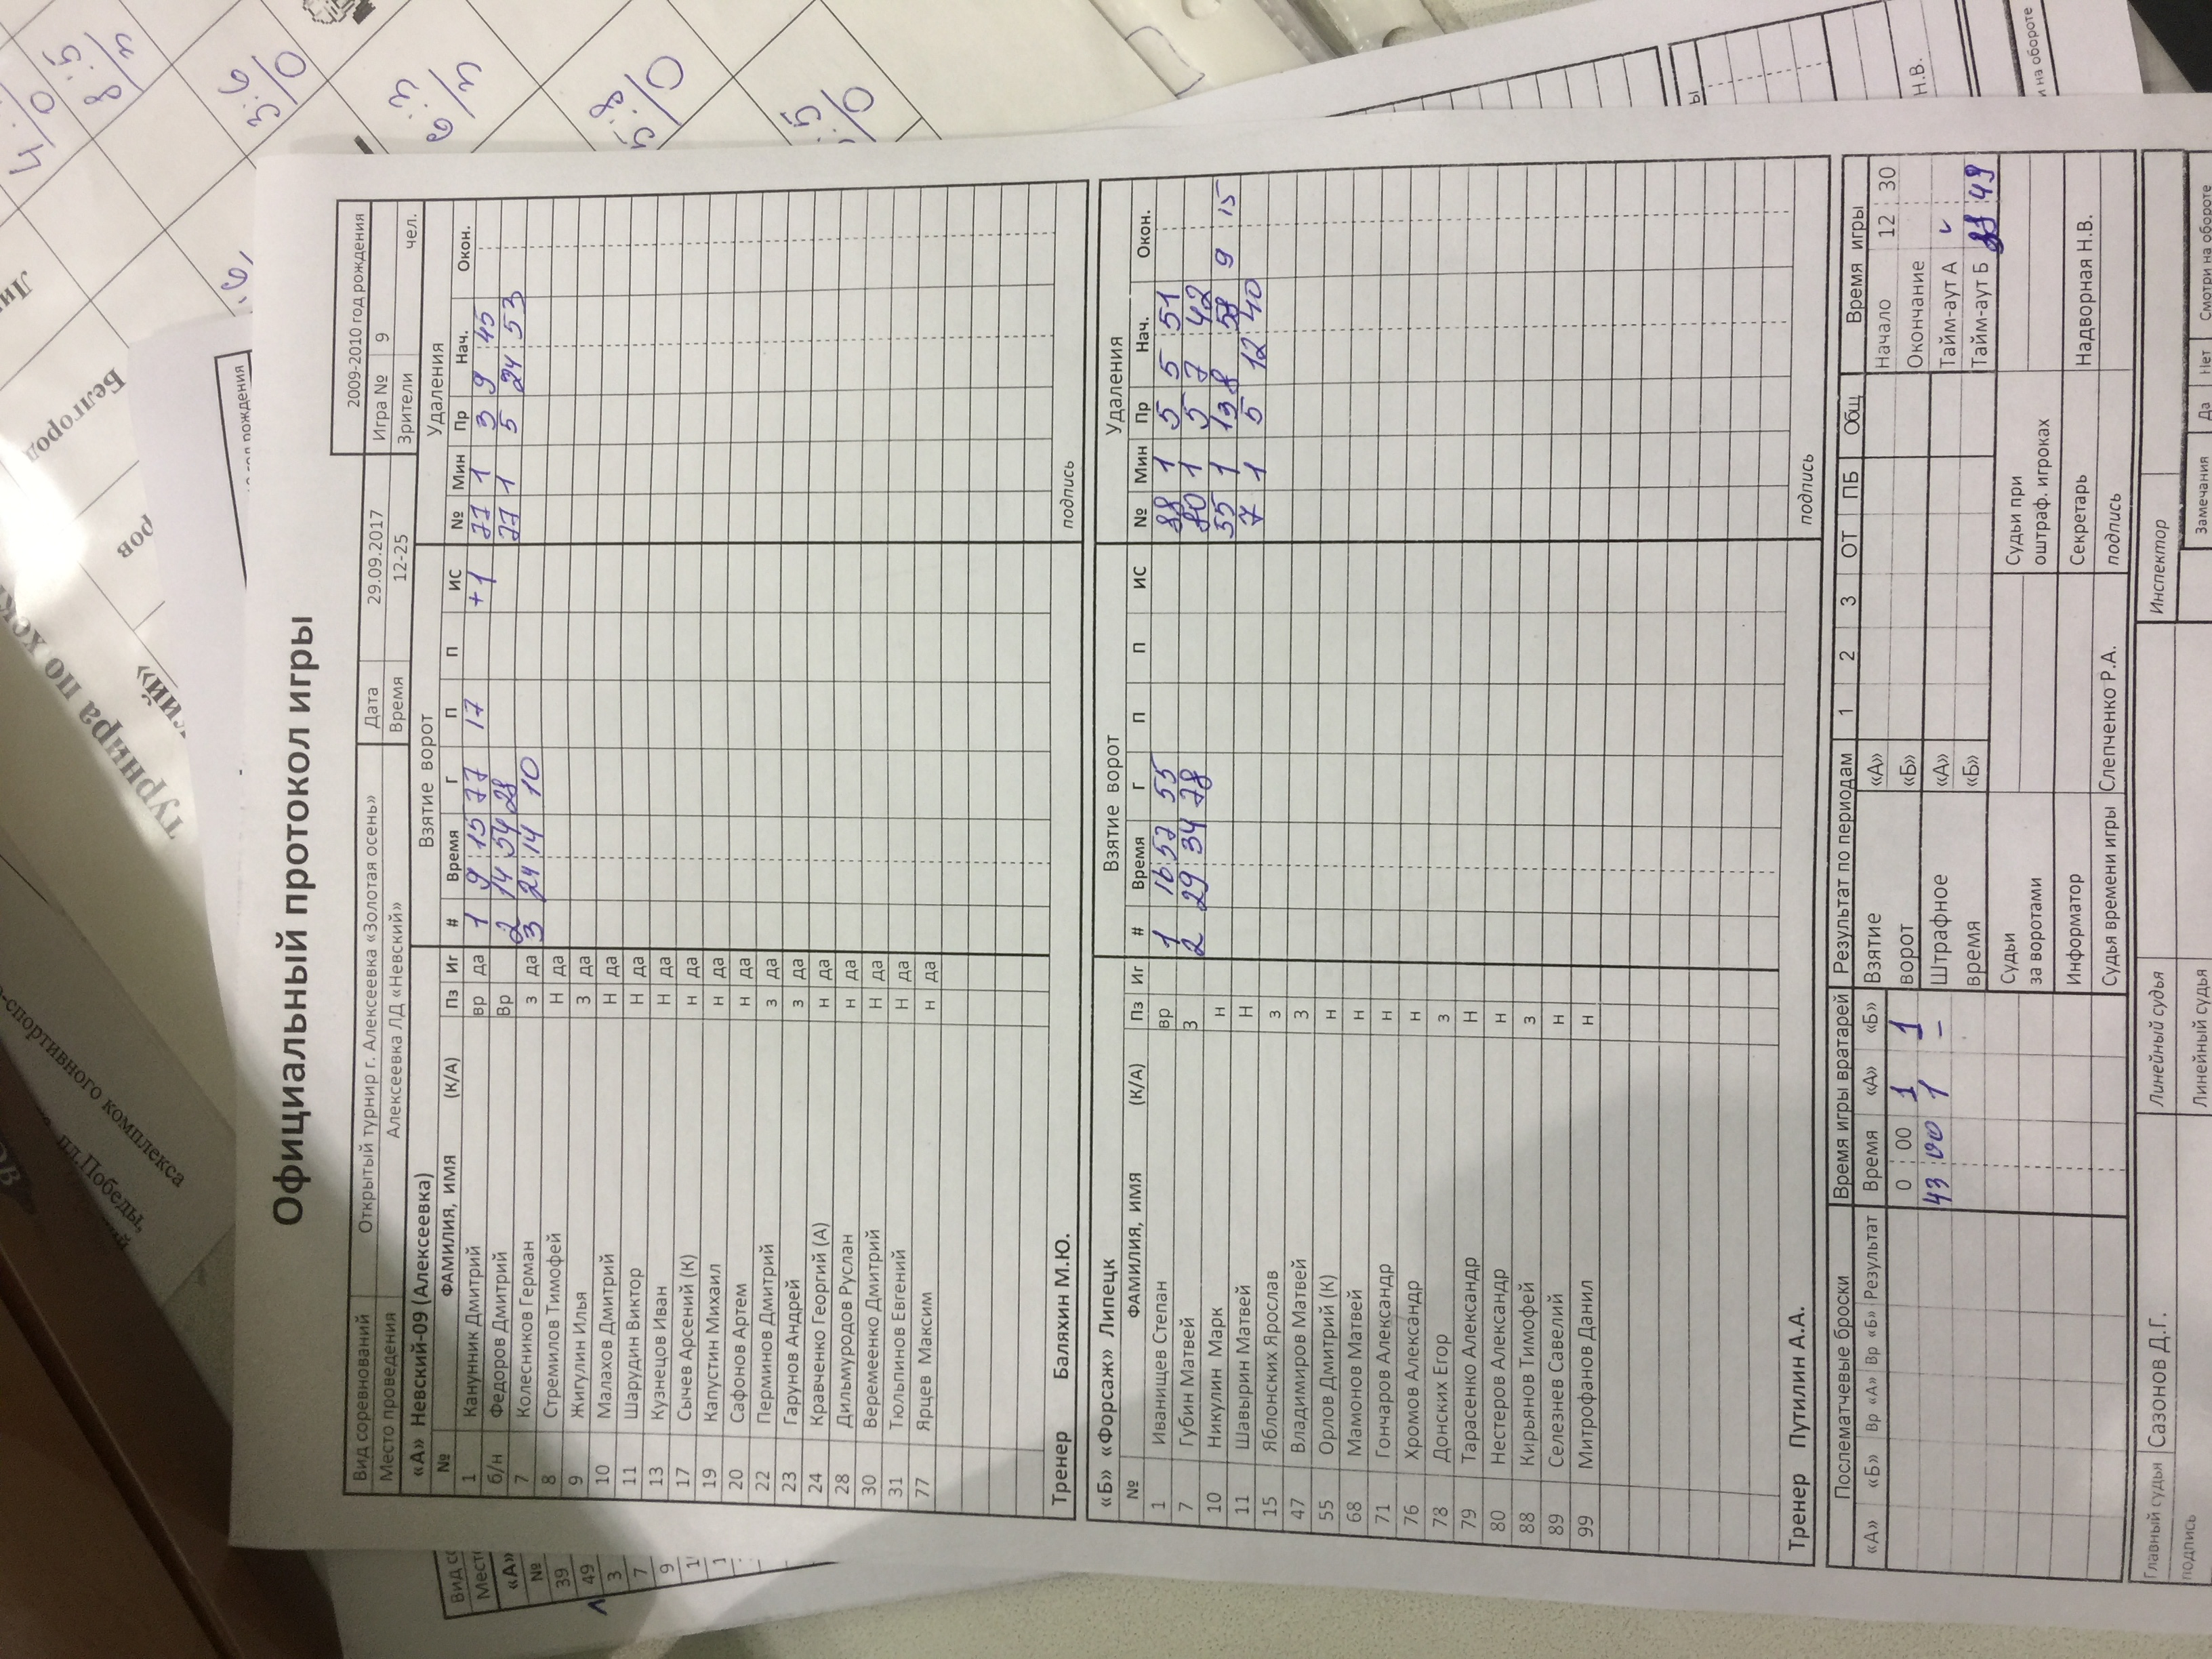 Официальный протокол игры
2009-2010 год рождения
Вид соревнований Открытый турнир г. Алексеевка «Золотая осень» Дата 29.09.2017 Игра № 9
Место проведения Алексеевка ЛД «Невский» Время 12-25 Зрители чел.
«А» Невский-09 (Алексеевка) Взятие ворот Удаления
№ ФАМИЛИЯ, ИМЯ (К/А) Пз Иг # Время Г П П ИС № Мин Пр Нач. Окон.
1 Канунник Дмитрий вр да 1 9 15 77 17 +1 77 1 3 9 45
б/н Федоров Дмитрий Вр 2 14 54 28 77 1 5 24 53
7 Колесников Герман з да 3 24 14 10
8 Стремилов Тимофей Н да
9 Жигулин Илья З да
10 Малахов Дмитрий Н да
11 Шарудин Виктор Н да
13 Кузнецов Иван Н да
17 Сычев Арсений (К) н да
19 Капустин Михаил н да
20 Сафонов Артем н да
22 Перминов Дмитрий з да
23 Гарунов Андрей з да
24 Кравченко Георгий (А) н да
28 Дильмуродов Руслан н да
30 Веремеенко Дмитрий Н да
31 Тюльпинов Евгений Н да
77 Ярцев Максим н да
Тренер Баляхин М.Ю. подпись
«Б» «Форсаж» Липецк Взятие ворот Удаления
№ ФАМИЛИЯ, ИМЯ (К/А) Пз Иг # Время Г П П ИС № Мин Пр Нач. Окон.
1 Иванищев Степан вр 1 16 57 55 88 1 5 5 51
7 Губин Матвей З 2 29 34 78 80 1 5 7 42
10 Никулин Марк н 55 1 13 8 58 9 15
11 Шавырин Матвей Н 7 1 5 12 40
15 Яблонских Ярослав з
47 Владимиров Матвей З
55 Орлов Дмитрий (К) н
68 Мамонов Матвей н
71 Гончаров Александр н
76 Хромов Александр н
78 Донских Егор з
79 Тарасенко Александр Н
80 Нестеров Александр н
88 Кирьянов Тимофей з
89 Селезнев Савелий н
99 Митрофанов Данил н
Тренер Путилин А.А. подпись
Послематчевые броски Время игры вратарей Результат по периодам 1 2 3 ОТ ПБ Общ Время игры
«А» «Б» Вр «А» Вр «Б» Результат Время «А» «Б» Взятие «А» Начало 12 30
0 00 1 1 ворот «Б» Окончание
43 00 1 – Штрафное «А» Тайм-аут А
время «Б» Тайм-аут Б 49
Судьи за воротами Судьи при оштраф. игроках
Информатор Секретарь Надворная Н.В.
Судья времени игры Слепченко Р.А. подпись
Главный судья Сазонов Д.Г. Линейный судья Инспектор
подпись Линейный судья Замечания Да Нет Смотри на обороте